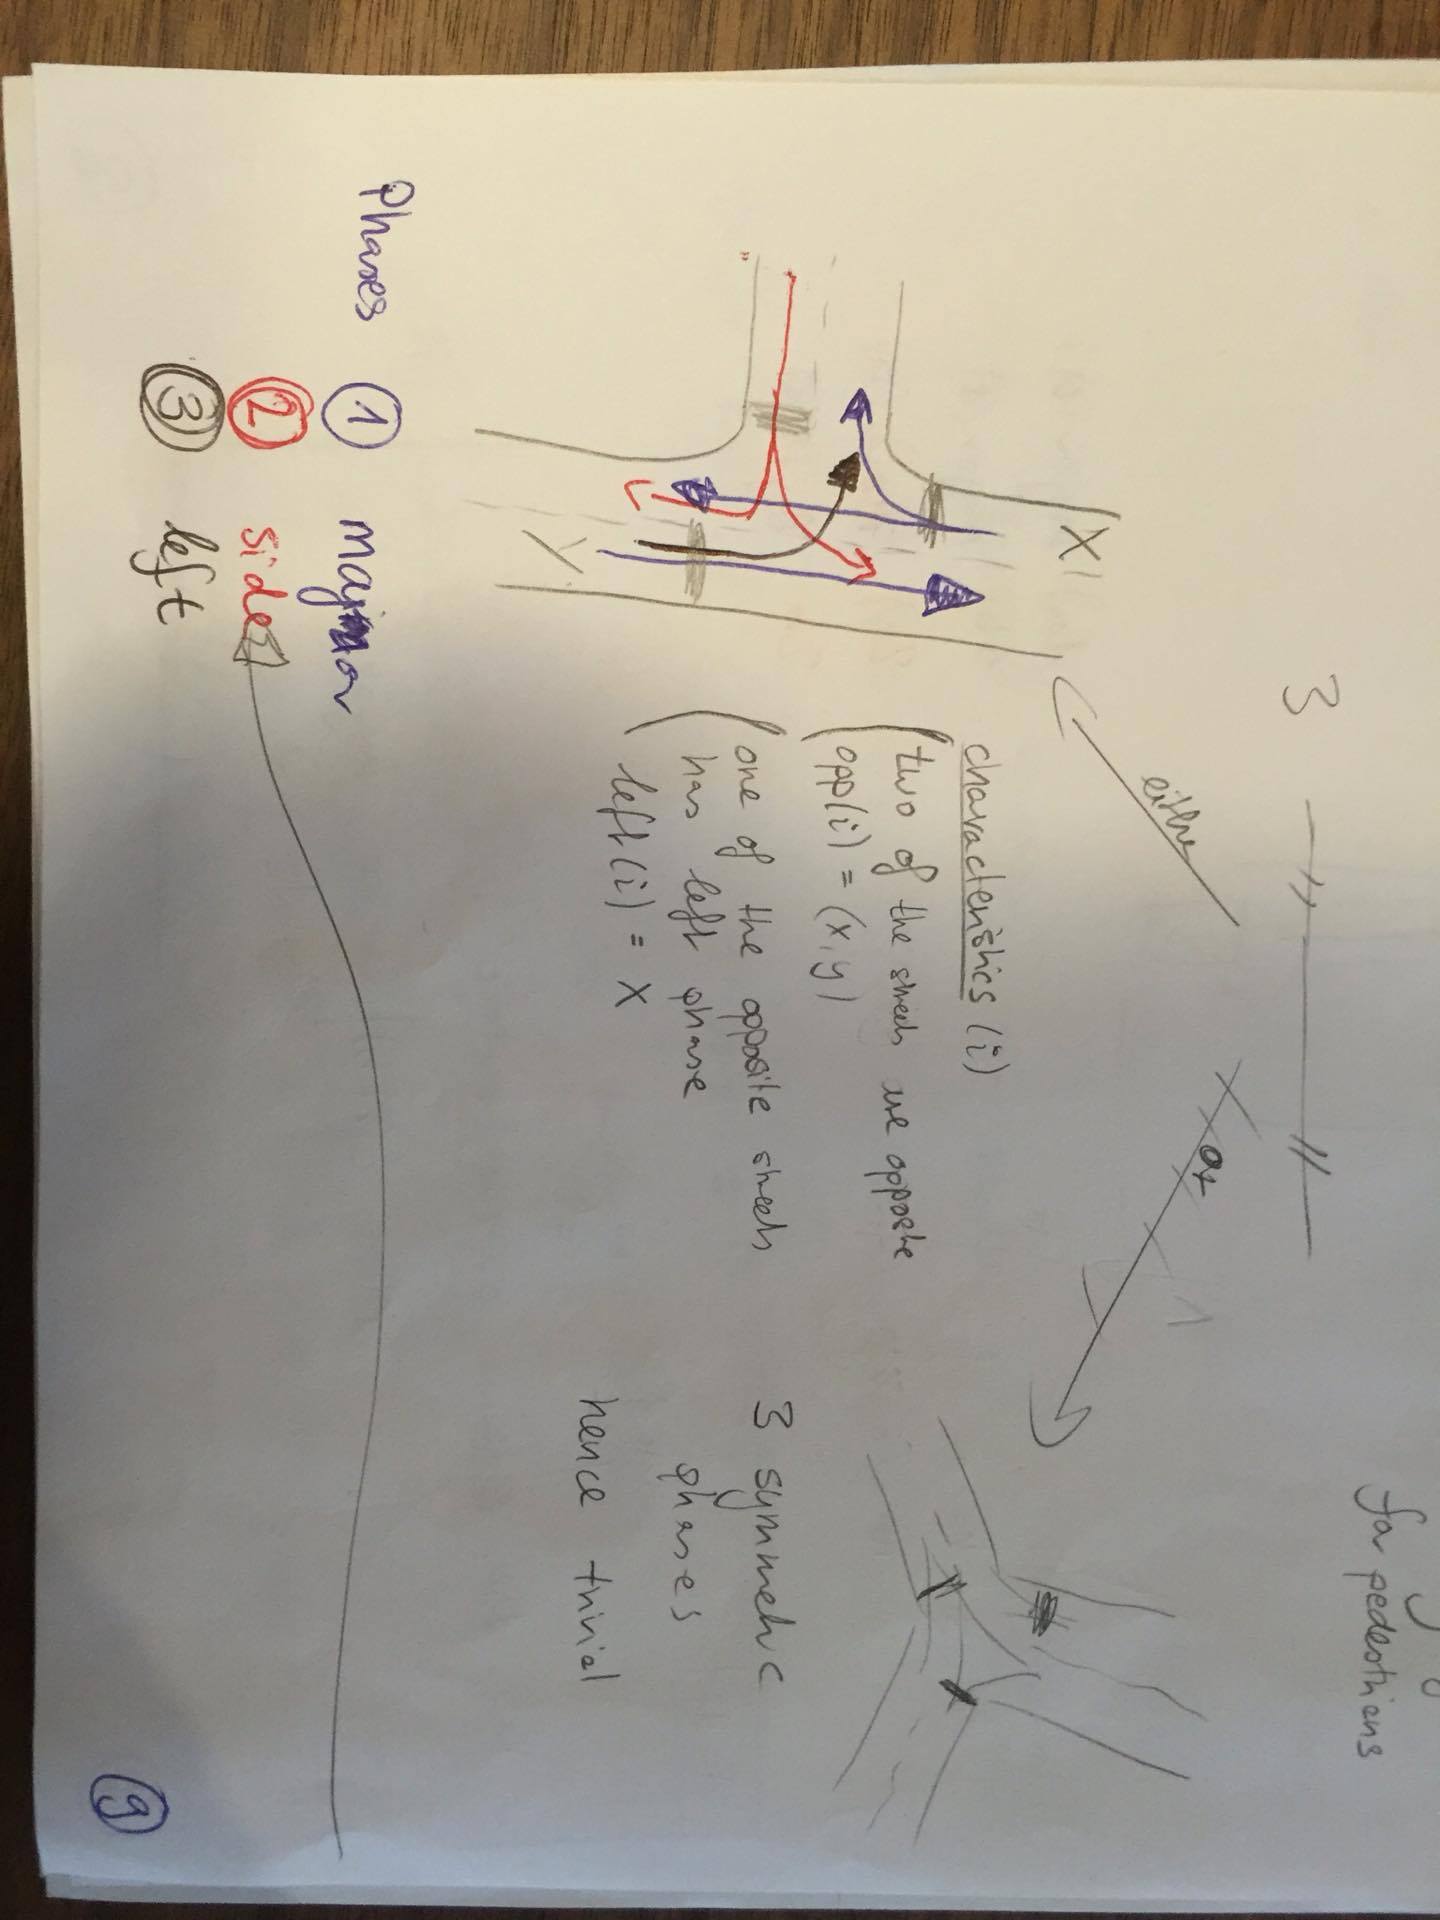 for pedestrians
3 —〃— //
either
or
X
Y
characteristics (i)
two of the streets are opposite
opp(i) = (x,y)
one of the opposite streets
has left phase
left(i) = X
3 symmetric
phases
hence trivial
Phases ① major
② side
③ left
9